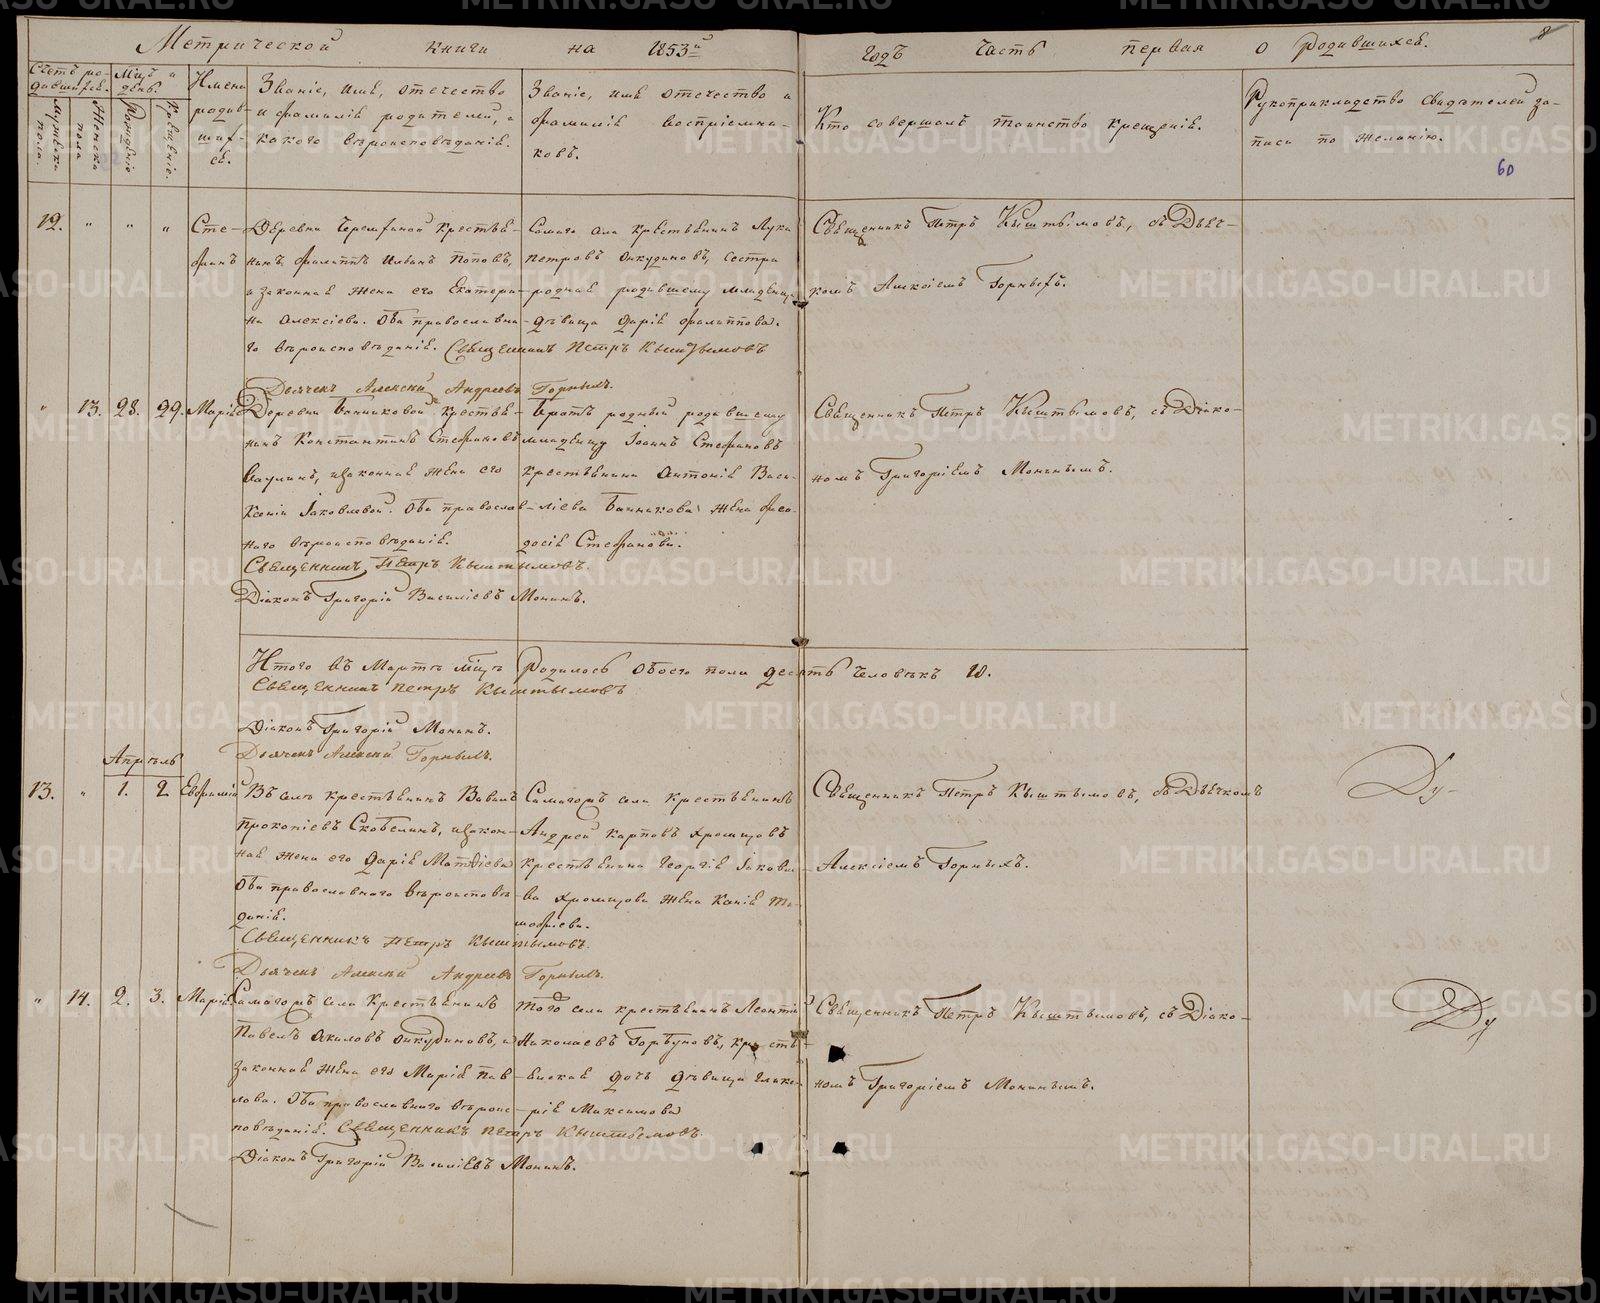 Метрической книги на 1853й годъ часть первая о родившихся.
8
60
Счетъ родившихся.
Мужеска пола.
Женска пола
Мѣцъ и день.
Рожденіе
Крещеніе.
Имена родившихся.
Званіе, имя, отечество
и фамилія родителей, и
какого вѣроисповѣданія.
Званіе, имя отечество и
фамилія воспріемни-
ковъ.
Кто совершалъ таинство крещенія.
Рукоприкладство свидѣтелей за-
писи по желанію.
12. " " "
Сте-
фанъ
Деревни Черемхиной крестья-
нинъ Филиппъ Ивановъ Поповъ,
и законная жена его Екатери-
на Алексѣева. Оба православна-
го вѣроисповѣданія. Священникъ Петръ Кыштымовъ
Дьячекъ Алексѣй Андреевъ Горныхъ.
Самаго села крестьянинъ Лука
Петровъ Анкудиновъ, сестра
родная родившему младенцу
дѣвица Дарія Филиппова.
Священникъ Петръ Кыштымовъ, съ Дьяч-
комъ Алексіемъ Горныхъ.
" 13. 28. 29. Марія
Деревни Банниковой крестья-
нинъ Константинъ Стефановъ
Ваулинъ, и законная жена его
Ксенія Іаковлева. Оба православ-
наго вѣроисповѣданія.
Священникъ Петръ Кыштымовъ.
Діаконъ Григорій Василіевъ Мониных.
Братъ родный родившему
младенцу Іоаннъ Стефановъ
крестьянина Антонія Васи-
ліева Банникова жена Фео-
досія Стефанова.
Священникъ Петръ Кыштымовъ, съ Діако-
номъ Григоріемъ Монинымъ.
Итого въ Мартѣ мѣцѣ родилось обоего пола десять человѣкъ 10.
Священникъ Петръ Кыштымовъ
Діаконъ Григорій Монинъ.
Дьячекъ Алексѣй Горныхъ.
Апрѣль
13. " 1. 2 Евфимій
Въ селѣ крестьянинъ Вавилъ
Прокопіевъ Скобелинъ, и закон-
ная жена его Дарія Матѳіева
Оба православнаго вѣроисповѣ-
данія.
Священникъ Петръ Кыштымовъ.
Дьячекъ Алексѣй Андреевъ Горныхъ.
Самагожъ села крестьянинъ
Андрей Карповъ Хромцовъ
крестьянина Георгія Іаковле-
ва Хромцова жена Ксенія Ти-
мофіева.
Священникъ Петръ Кыштымовъ, съ Дьячкомъ
Алексіемъ Горныхъ.
" 14. 2. 3. Марія
Самагожъ села крестьянинъ
Павелъ Акиловъ Анкудиновъ, и
законная жена его Марія Пав-
лова. Оба православнаго вѣроис-
повѣданія. Священникъ Петръ Кыштымовъ.
Діаконъ Григорій Василіевъ Монинъ.
Того села крестьянинъ Леонтій
Николаевъ Горбуновъ, кресть-
янская дочь дѣвица Глике-
рія Максимова
Священникъ Петръ Кыштымовъ, съ Діако-
номъ Григоріемъ Монинымъ.
METRIKI.GASO-URAL.RU